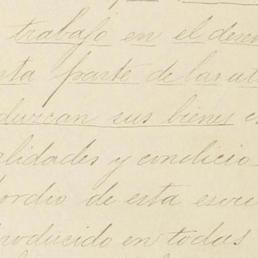 trabajo en el desem
nta parte de las ut
duzcan sus bienes e
alidades y condicio
ordio de esta escri
producido en todas